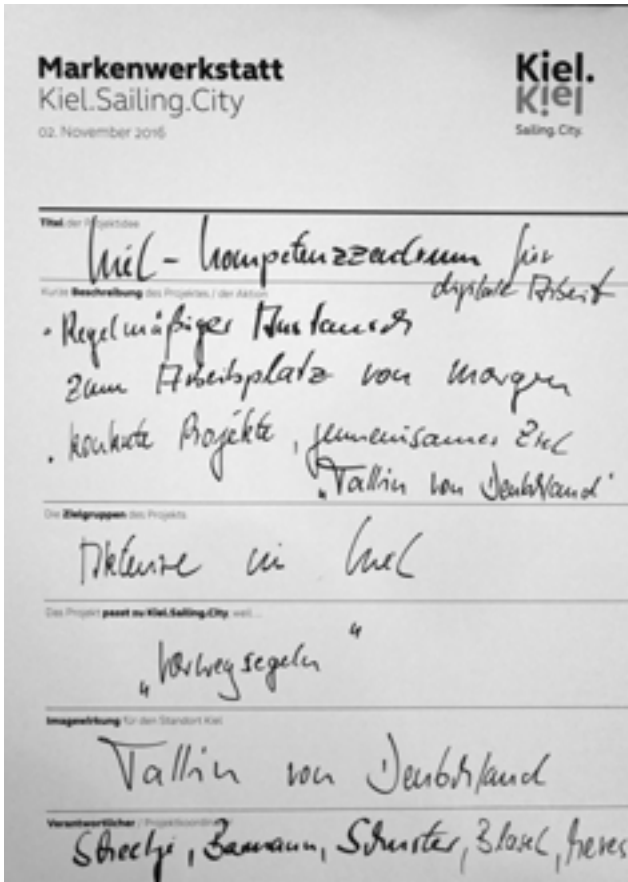 Markenwerkstatt
Kiel.Sailing.City
02. November 2016
Kiel.
Kiel
Sailing.City.
Titel der Projektidee
Kiel - Kompetenzzentrum für
digitale Arbeit
Kurze Beschreibung des Projektes / der Aktion
· Regelmäßiger Austausch
zum Arbeitsplatz von morgen
· konkrete Projekte, gemeinsames Ziel
„Tallin von Deutschland"
Die Zielgruppen des Projekts
Akteure in Kiel
Das Projekt passt zu Kiel.Sailing.City, weil ...
„Vorwegsegeln"
Imagewirkung für den Standort Kiel
Tallin von Deutschland
Verantwortlicher / Projektkoordinator
Schuster,